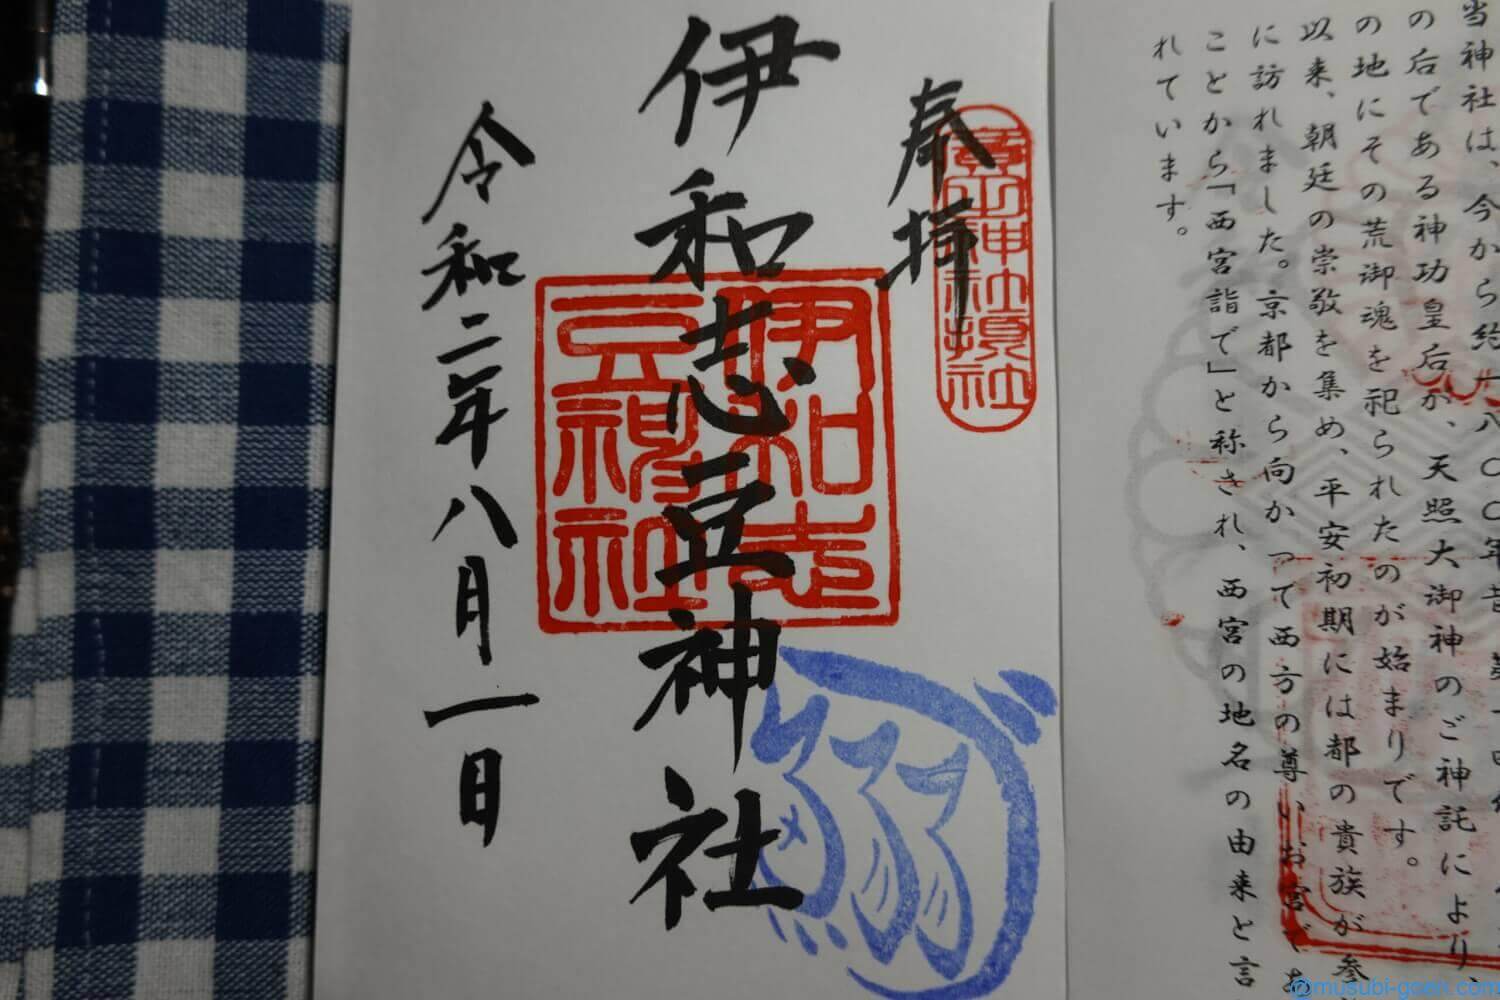 当神社は、今から約一八〇〇年昔、第十四代
の后である神功皇后が、天照大御神のご神託により、
の地にその荒御魂を祀られたのが始まりです。
以来、朝廷の崇敬を集め、平安初期には都の貴族が参
に訪れました。京都から向かって西方の尊いお宮であ
ことから「西宮詣で」と称され、西宮の地名の由来と言
れています。
奉拝
廣田神社摂社
伊和志豆神社
伊和志
豆神社
令和二年八月一日
@musubi-goen.com